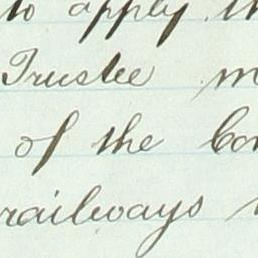 to apply th
Trustee m
of the Con
railways